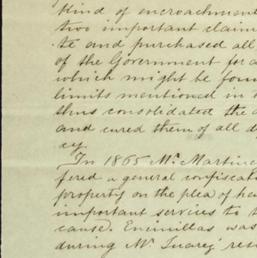 kind of encroachmen
two important claim
te and purchased all
of the Government for a
which might be foun
limits mentioned in
thus consolidated the
and cured them of all d
cy.
In 1865 Mr. Martin
fered a general confiscat
property on the plea of ha
important services to t
cause. Encinillas was
during Mr Juarez' resi